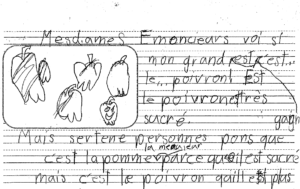 Mesdames Emoncieurs voi si
mon grand est c'est..
le.. poivron! Est
le poivron très
sucré. gagn
Mais sertene personnes pons que
la meilleur
c'est la pomme parce que il est sucré
mais c'est le poivron qui est plus